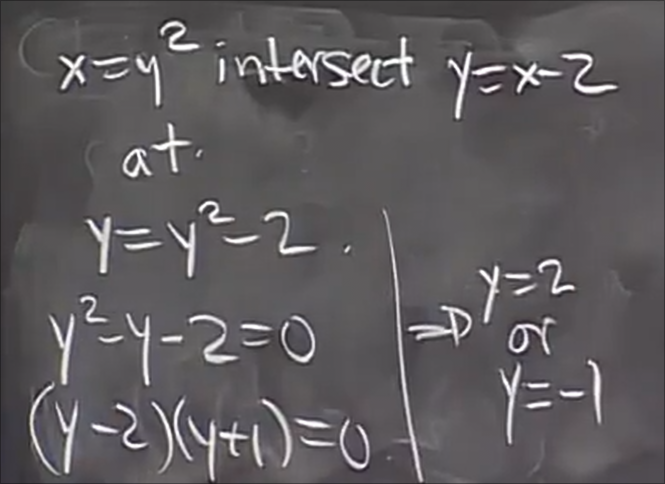 x=y² intersect y=x-2
at.
y=y²-2.
y²-y-2=0
(y-2)(y+1)=0
⇒ y=2
or
y=-1